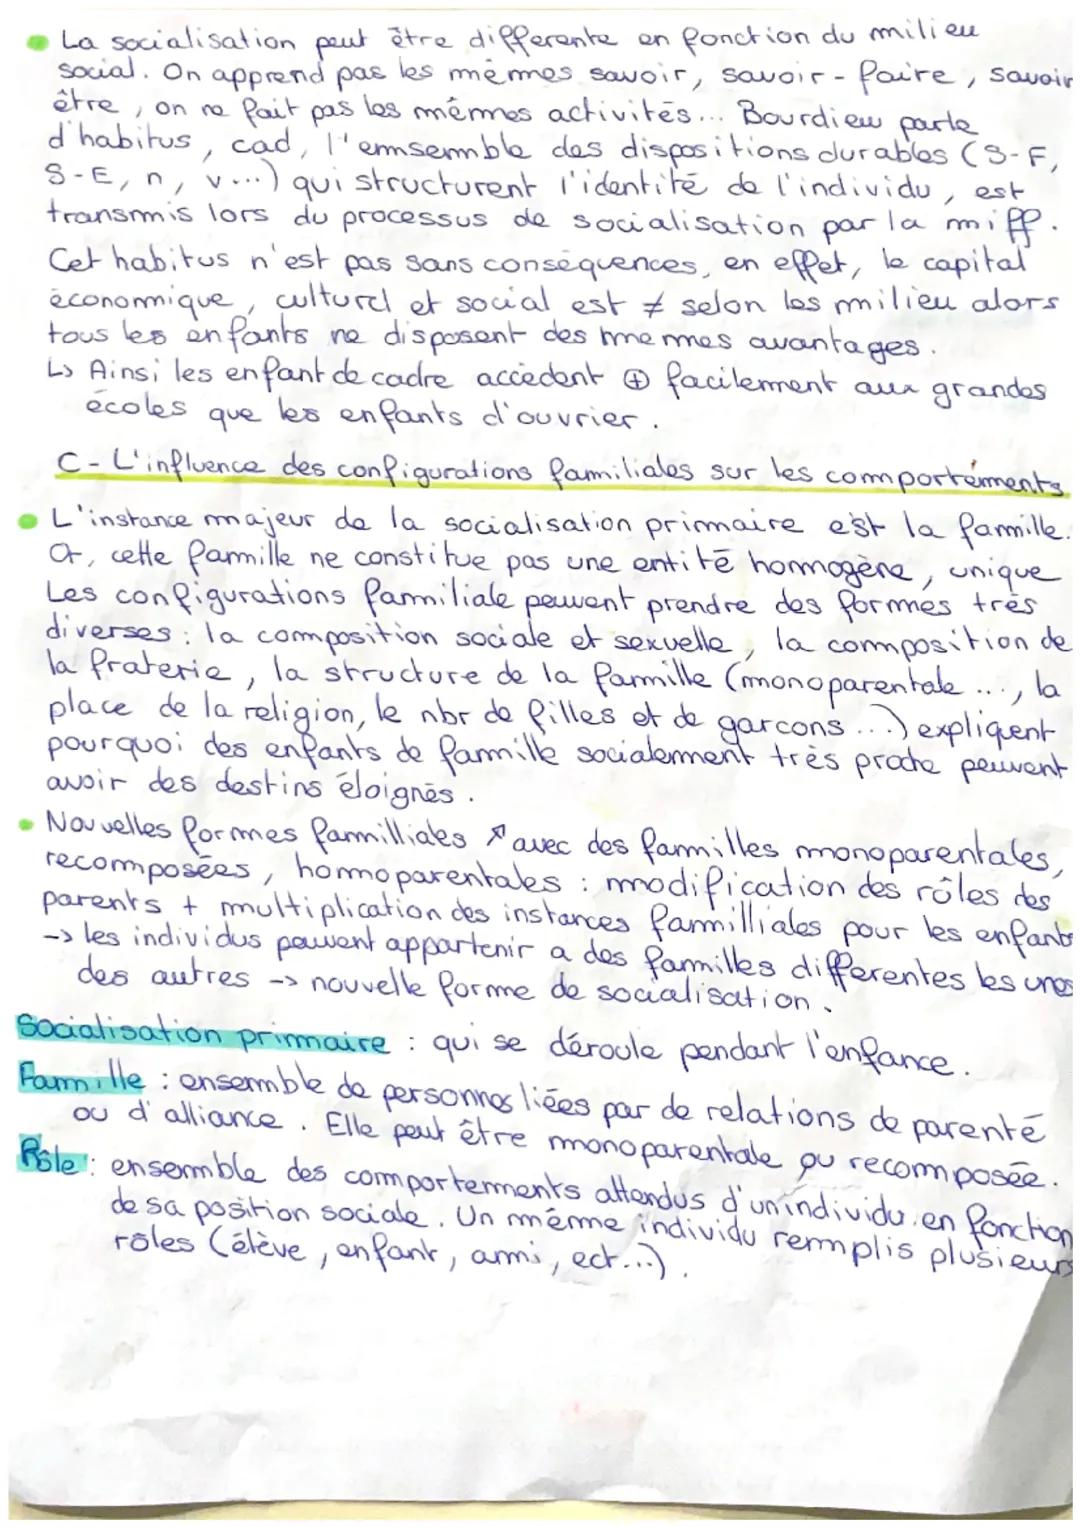 La socialisation peut être differente en fonction du milieu
social. On apprend pas les mêmes savoir, savoir-faire, savoir
être, on ne fait pas les mêmes activités... Bourdieu parle
d'habitus, cad, l'ensemble des dispositions durables (S-F,
S-E, n, v...) qui structurent l'identité de l'individu, est
transmis lors du processus de socialisation par la miff.
Cet habitus n'est pas sans conséquences, en effet, le capital
économique, culturel et social est ≠ selon les milieu alors
tous les enfants ne disposent des memes avantages.
↳ Ainsi les enfant de cadre accèdent ⊕ facilement aux grandes
écoles que les enfants d'ouvrier.
C - L'influence des configurations familiales sur les comportements
L'instance majeur de la socialisation primaire est la famille.
Or, cette famille ne constitue pas une entité homogène, unique
Les configurations familiale peuvent prendre des formes très
diverses : la composition sociale et sexuelle, la composition de
la fraterie, la structure de la famille (monoparentale ..., la
place de la religion, le nbr de filles et de garcons ...) expliquent
pourquoi des enfants de famille socialement très proche peuvent
avoir des destins éloignés.
Nouvelles formes familliales ↗ avec des familles monoparentales,
recomposées, homoparentales : modification des rôles des
parents + multiplication des instances familliales pour les enfants
-> les individus peuvent appartenir a des familles differentes les unes
des autres -> nouvelle forme de socialisation.
Socialisation primaire : qui se déroule pendant l'enfance.
Famille : ensemble de personnes liées par de relations de parenté
ou d'alliance. Elle peut être monoparentale ou recomposée.
Rôle : ensemble des comportements attendus d'un individu en fonction
de sa position sociale. Un même individu remplis plusieurs
rôles (élève, enfant, ami, ect...).